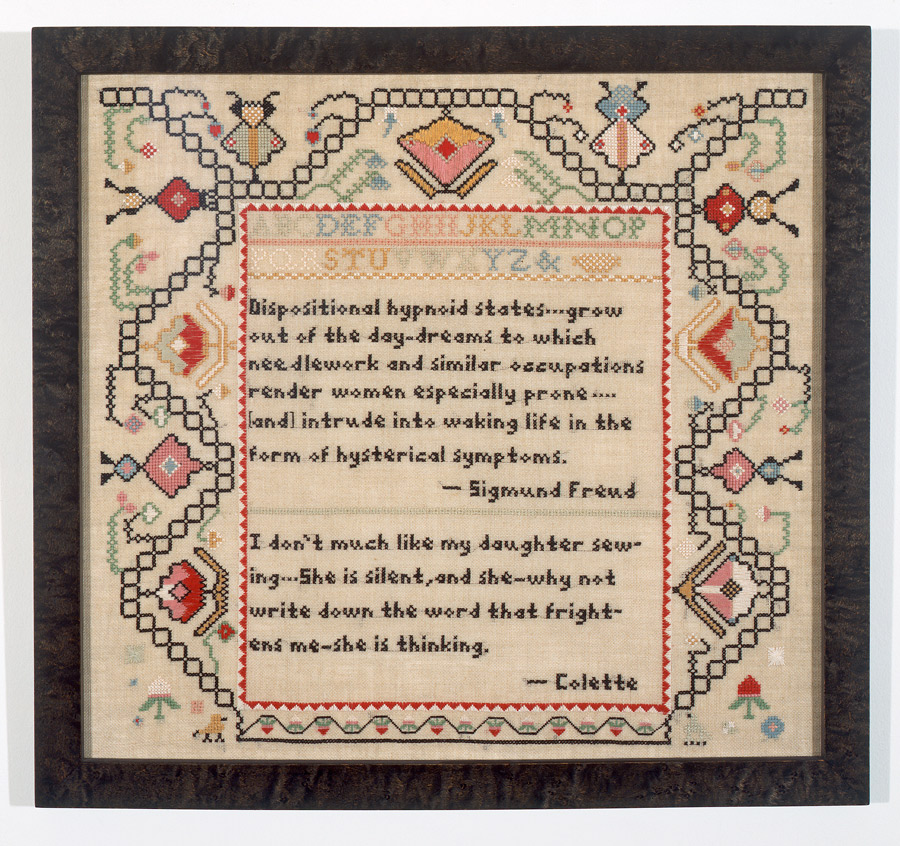 ABCDEFGHIJKLMNOP
QRSTUVWXYZ&
Dispositional hypnoid states...grow
out of the day-dreams to which
needlework and similar occupations
render women especially prone....
[and] intrude into waking life in the
form of hysterical symptoms.
— Sigmund Freud
I don't much like my daughter sew-
ing...She is silent, and she-why not
write down the word that fright-
ens me-she is thinking.
— Colette